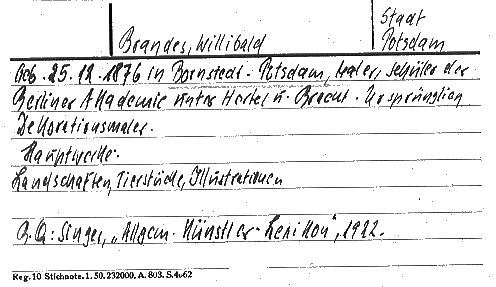 Stadt
Brandes, Willibald Potsdam
Geb. 25.12.1876 in Bornstedt-Potsdam, Maler, Schüler der
Berliner Akademie unter Hertel u. Bracht. Ursprünglich
Dekorationsmaler.
Hauptwerke:
Landschaften, Tierstücke, Illustrationen
B.Q.: Singer, „Allgem. Künstler-Lexikon", 1922.
Reg. 10 Stichnote. 1. 50. 232000. A. 803. S. 4062